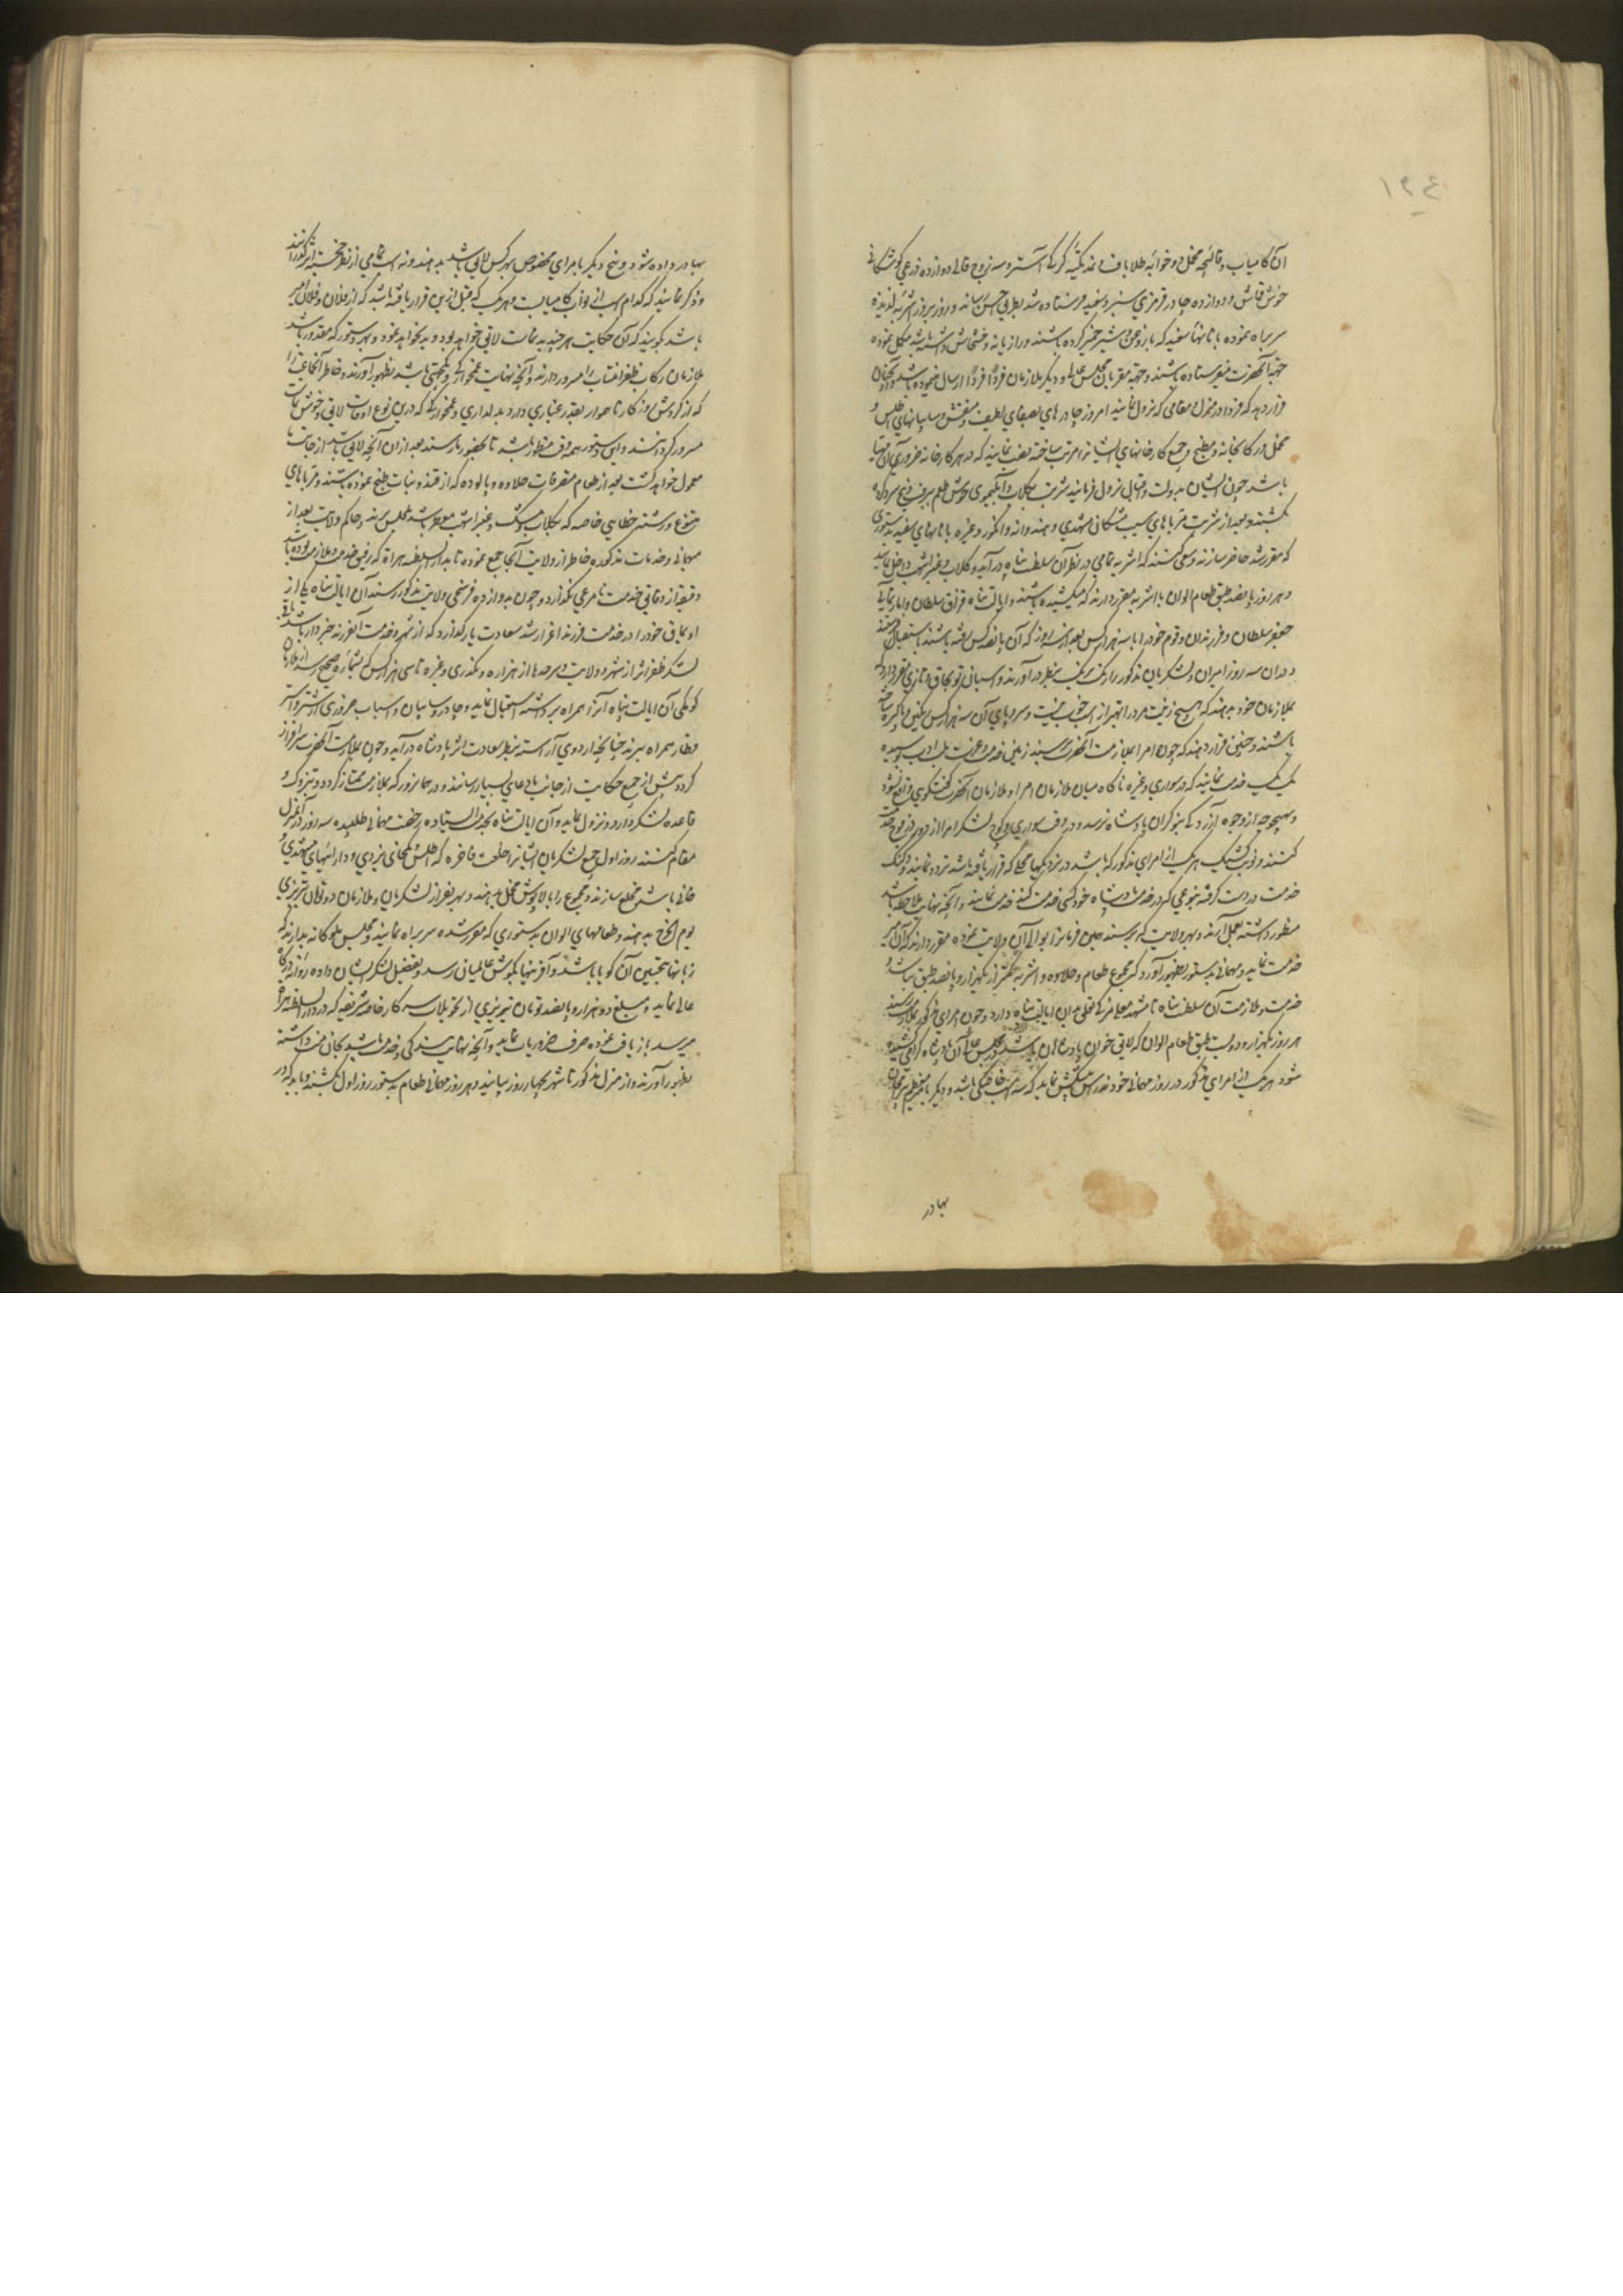 ١٢٤
آن کامیاب و قالیچه مخمل دو خوابه طلاباف و نمد تکیه کرکی استر و سه زوج قالی دوازده ذرعی کوشکانی
خوش قماش و دوازده چادر قرمزی و سبز و سفید فرستاده شد بطریق احسن رساند و روز بروز اشربه لذیذه
سربراه نموده با نانهای سفید که با روغن و شیر خمیر کرده باشند و رازیانه و خشخاش داشته باشد مکمل نموده
جهت آنحضرت میفرستاده باشند و جهة مقربان مجلس عالی و دیگر ملازمان فردًا فردًا ارسال نموده باشد و آنچنان
قرار دهد که فردا در منزل و مقامی که نزول نمایند امروز چادرهای با صفای لطیف منقش و سایبانهای اطلس و
مخمل و رکابخانه و مطبخ و جمیع کارخانهای ایشان را مرتب ساخته نصب نمایند که در هر کارخانه ضروری آن مهیا
باشد چون ایشان بدولت و اقبال نزول فرمایند شربت گلاب و آبلیموی خوش طعم ببرف و یخ سرد کرده
بکشند و بعد از شربت مرباهای سیب مشکان مشهدی و هندوانه و انگور و غیره با نانهای سفید بدستوری
که مقرر شد حاضر سازند و سعی کنند که اشربه تمامی در نظر آن سلطنت پناه درآید و گلاب و عنبر اشهب داخل نمایند
و هر روز پانصد طبق طعام الوان با اشربه مقرر دارند که میکشیده باشند و ایالت پناه قزاق سلطان و امارت مآبی
جعفر سلطان و فرزندان و قوم خود را تا سه هزار کس بعد از سه روز که آن پانصد کس رفته باشند باستقبال فرستند
و در آن سه روز امیران و لشکریان مذکور را رنگ برنگ بنظر درآورند و اسپان توپچاق و تازی مقرر دارد که
بملازمان خود بدهند که هیچ زینت مرد را بهتر از اسب خوب نیست و سروپای آن سه هزار کس رنگین و پاکیزه ساخته
باشند و چنین قرار دهند که چون امرا بملازمت آنحضرت رسند زمین خدمت و عزت بلب ادب بوسیده
یک یک خدمت نمایند که در سواری و غیره ناگاه میان ملازمان امرا و ملازمان آنحضرت گفتگوی واقع نشود
و بهیچ وجه از وجوه آزردگی بنوکران پادشاه نرسد و در وقت سواری و کوچ لشکر امرا از دور فوج فوج خدمت
کنند و نوبت کشیک هر یک از امرای مذکور که باشد در نزدیکیهای محلی که قرار یافته باشد تردد نمایند و کنک
خدمت در دست گرفته بنوعی که در خدمت پادشاه خود کسی خدمت کند خدمت نمایند و آنچه نهایت ملاحظه باشد
منظور داشته بعمل آرند و بهر ولایت که برسند همین فرمانرا بوالی آن ولایت نموده مقرر دارند که آن میر
خدمت نماید و مهمانی بدستور بظهور آورد که مجموع طعام و حلاوه و اشربه کمتر از یکهزار و پانصد طبق نباشد و
خدمت و ملازمت آن سلطنت پناه تا مشهد معلی مزکی تعلق بدان ایالت پناه دارد و چون امرای مذکور بملازمت رسند
هر روز یکهزار و دویست طبق طعام الوان که لایق خوان پادشاهان باشد در مجلس عالی آن پادشاه گرامی کشیده
شود هر یک از امرای مذکور در روز مهمانی خود نه راس اسب پیشکش نماید که سه اسب خاصگی باشد و دیگر بامیر معظم بیرامخان
بهادر
بهادر داده شود و پنج دیگر بامرای مخصوص بهر کس لایق باشد بدهند و نه اسب تمامی از نظر خجسته اثر گذرانند
و ذکر نمایند که کدام اسپ از نواب کامیابست و هر یک که قبل ازین قرار یافته باشد که از فلان و فلان امیر
باشد بگویند که آن حکایت هر چند بد نماست لایق خواهد بود و بد نخواهد نمود و بهر دستور که مقدور باشد
ملازمان رکاب ظفر انتساب را مسرور دارند و آنچه نهایت غمخوارگی و یکجهتی باشد بظهور آورند و خاطر آنجماعت را
که از گردش روزگار ناهموار بقدر غباری دارد بدلداری و غمخوارگی که درین نوع اوقات لایق و خوش نماست
مسرور گردانند و این دستور همه وقت منظور باشد تا بحضور ما رسند بعد از آن آنچه لایق باشد از جانب ما
معمول خواهد گشت بعد از طعام متفرقات حلاوه و پالوده که از قند و نبات طبخ نموده باشند و مرباهای
متنوع و رشته خطایی خاصه که بگلاب و مشک و عنبر اشهب معطر باشد بمجلس برند و حاکم ولایت بعد از
مهمانی و خدمات مذکوره خاطر از ولایت آنجا جمع نموده تا بدار السلطنه هراة که رفیق خدمت و ملازمت بوده باشد
دقیقه از دقایق خدمت نامرعی نگذارد و چون بدوازده فرسخی ولایت مذکور رسند آن ایالت پناه یکی از
اویماق خود را در خدمت فرزند اعز ارشد سعادت یار گذارد که از شهر و خدمت آنفرزند خبردار باشد باقی
لشکر ظفر اثر از شهر و ولایت و سرحدها از هزاره و نکدری و غیره تا سی هزار کس که بشماره صحیح رسد از ملازمان
کومکی آن ایالت پناه آنرا همراه برداشته استقبال نماید و چادر و سایبان و اسباب ضروری از شتر و استر
قطار همراه ببرند چنانچه اردوی آراسته بنظر سعادت اثر پادشاه درآید و چون بملازمت آنحضرت سرافراز
گردد پیش از جمیع حکایت از جانب ما دعای بسیار رسانند و در همان روز که بملازمت ممتاز گردد بتزوک و
قاعده لشکر و اردو نزول نماید و آن ایالت پناه بخدمت ایستاده رخصت مهمانی طلبیده سه روز در آن منزل
مقام کنند روز اول جمیع لشکریان ایشان را بخلعت فاخره که اطلس و کمخای یزدی و دارائیهای مشهدی و
خافی باشد مخلع سازند و مجموع را بالاپوش مخمل بدهند و بهر نفر از لشکریان و ملازمان دو تومان تبریزی
یوم الخرج بدهند و طعامهای الوان بدستوری که مقرر شده سربراه نمایند و مجلس ملوکانه بدارند که
زبانها بتحسین آن گویا باشد و آفرینها بگوش عالمیان رسد و تفصیل لشکر ایشان داده روانه درگاه
عالی نماید و مبلغ دو هزار و پانصد تومان تبریزی از تحویلات سرکار خاصه شریفه که در دار السلطنه هراة
میرسد بازیافت نموده صرف ضروریات نماید و آنچه نهایت بندگی و خدمت باشد بجان منت داشته
بظهور آورند و از منزل مذکور تا شهر بچهار روز بیایند و هر روز مهمانی طعام بدستور روز اول بکشند و باید که در